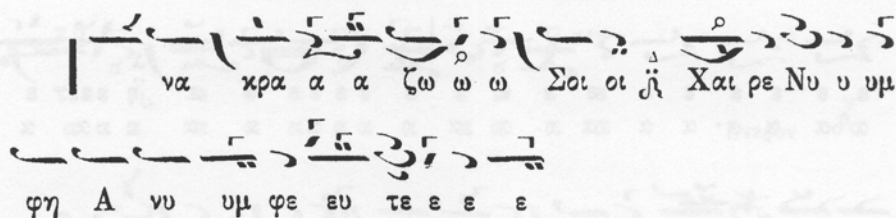 να κρα α α ζω ω ω Σοι οι Δ Χαι ρε Νυ υ υμ
φη Α νυ υμ φε ευ τε ε ε ε